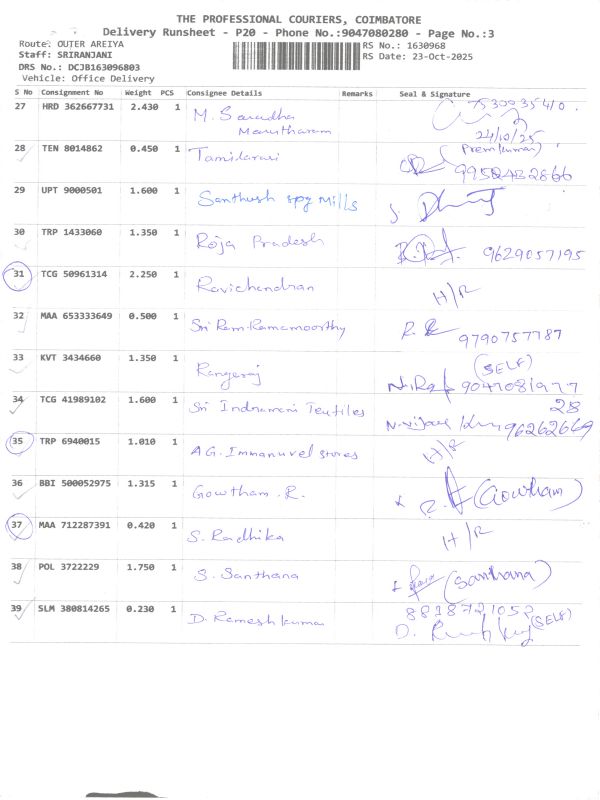 THE PROFESSIONAL COURIERS, COIMBATORE
Delivery Runsheet - P20 - Phone No.:9047080280 - Page No.:3
Route: OUTER AREIYA
RS No.: 1630968
Staff: SRIRANJANI
RS Date: 23-Oct-2025
DRS No.: DCJB163096803
Vehicle: Office Delivery
S No Consignment No Weight PCS Consignee Details Remarks Seal & Signature
27 HRD 362667731 2.430 1 M. Saradha 7530035410
Marutharam 24/10/25
28 TEN 8014862 0.450 1 Tamilarasi (Premkumar)
9952432866
29 UPT 9000501 1.600 1 Santhush spg Mills
30 TRP 1433060 1.350 1 Roja Pradesh 9629057195
31 TCG 50961314 2.250 1 Ravichandran H/R
32 MAA 653333649 0.500 1 Sri Ram Ramamoorthy 9790757787
33 KVT 3434660 1.350 1 Rangaraj (SELF)
9047081977
34 TCG 41989102 1.600 1 Sri Indrameni Textiles 28
N. Vijaya 96262669
35 TRP 6940015 1.010 1 A.G. Immanuvel stores H/R
36 BBI 500052975 1.315 1 Gowtham . R. (Gowtham)
37 MAA 712287391 0.420 1 S. Radhika H/R
38 POL 3722229 1.750 1 S. Santhana (Santhana)
39 SLM 380814265 0.230 1 D. Rameshkumar 8818721052
(SELF)